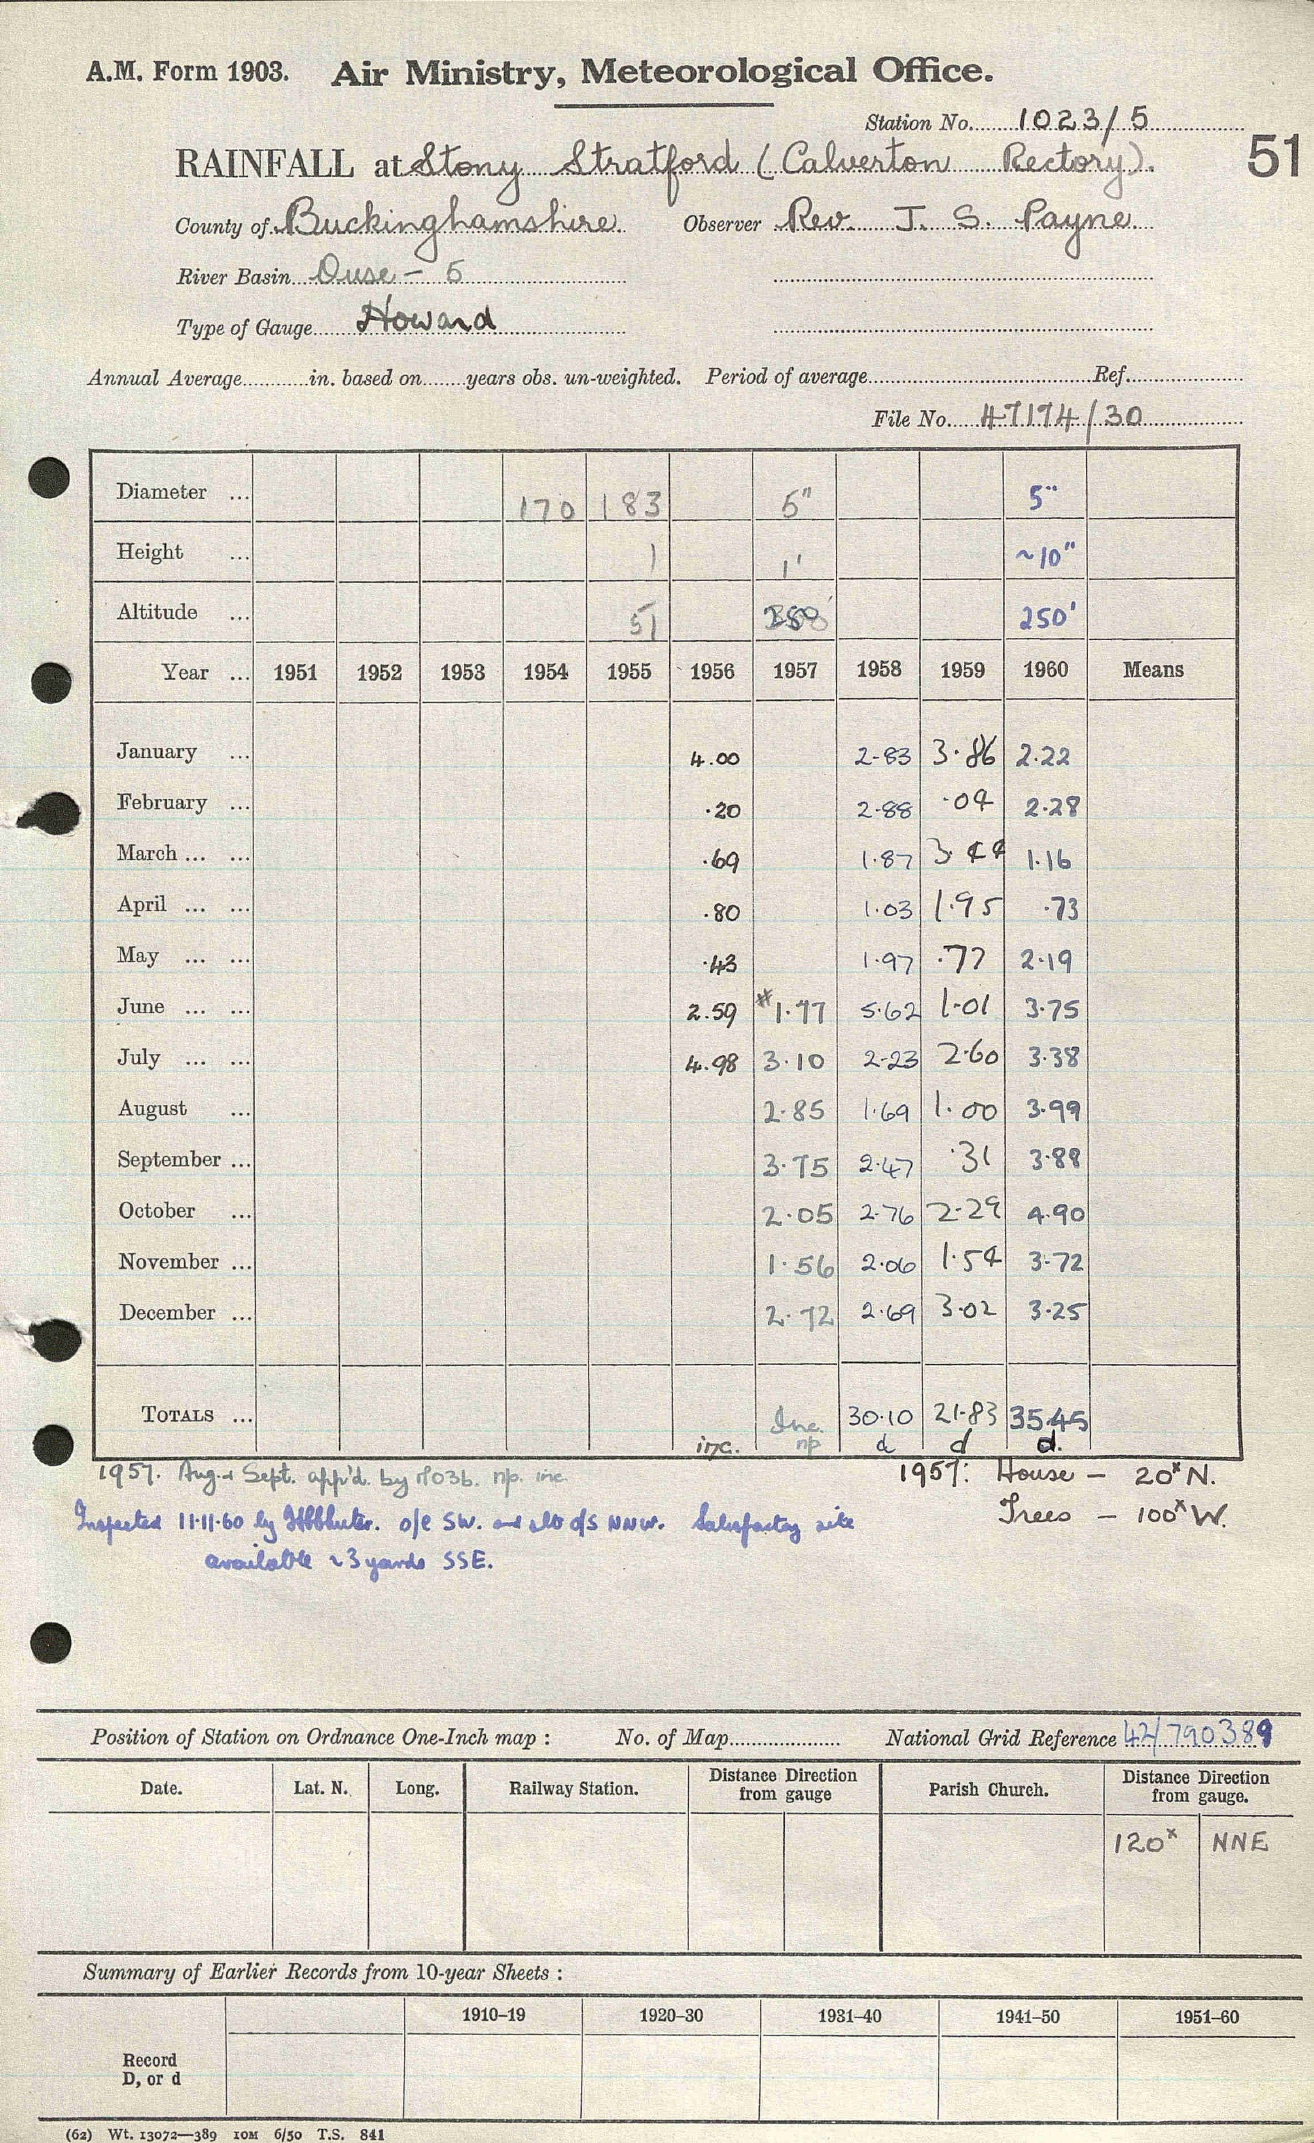 A.M. Form 1903. Air Ministry, Meteorological Office.
Station No. 1023/5
RAINFALL at Stony Stratford (Calverton Rectory). 51
County of Buckinghamshire. Observer Rev. J. S. Payne
River Basin Ouse - 5
Type of Gauge Howard
Annual Average in. based on years obs. un-weighted. Period of average Ref.
File No. 47174/30
Diameter ... 170 183 5" 5"
Height ... 1 1' ~10"
Altitude ... 51 250'
Year ... 1951 1952 1953 1954 1955 1956 1957 1958 1959 1960 Means
January ... 4.00 2.83 3.86 2.22
February ... .20 2.88 .04 2.28
March ... ... .69 1.87 3.44 1.16
April ... ... .80 1.03 1.95 .73
May ... ... .43 1.97 .77 2.19
June ... ... 2.59 *1.77 5.62 1.01 3.75
July ... ... 4.98 3.10 2.23 2.60 3.38
August ... 2.85 1.69 1.00 3.99
September ... 3.75 2.47 .31 3.88
October ... 2.05 2.76 2.29 4.90
November ... 1.56 2.06 1.54 3.72
December ... 2.72 2.69 3.02 3.25
TOTALS ... Inc. 30.10 21.83 35.45
inc. np d d d.
1957. Aug. & Sept. app'd. by M03b. np. inc. 1957: House - 20x N.
Trees - 100x W.
Inspected 11.11.60 by o/e SW. and also o/s NNW. Satisfactory site
available ~3 yards SSE.
Position of Station on Ordnance One-Inch map : No. of Map National Grid Reference 42/790389
Date. Lat. N. Long. Railway Station. Distance Direction from gauge Parish Church. Distance Direction from gauge.
120x NNE
Summary of Earlier Records from 10-year Sheets :
1910–19 1920–30 1931–40 1941–50 1951–60
Record
D, or d
(62) Wt. 13072—389 10M 6/50 T.S. 841